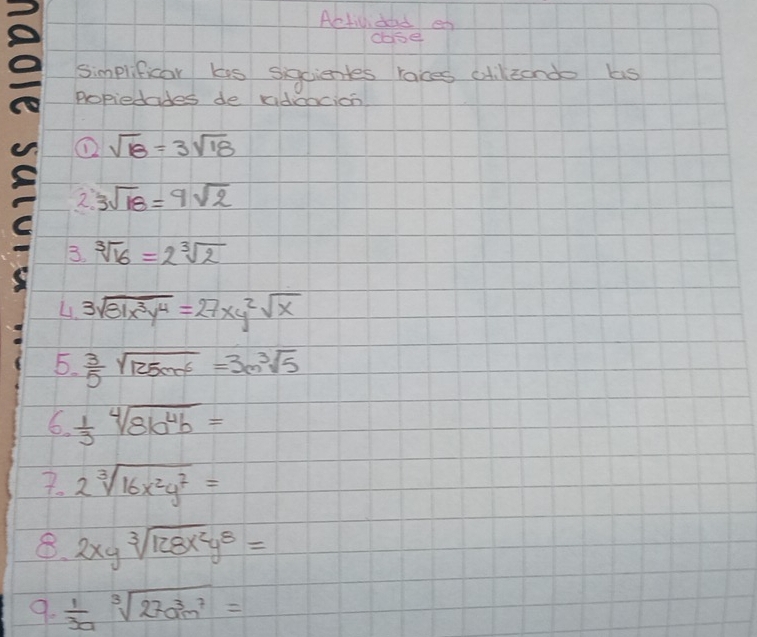 Actividad en
clase
Simplificar las siguientes raices utilizando las
Propiedades de radicación
① √18 = 3√18
2. 3√18 = 9√2
3. ∛16 = 2∛2
4. 3√81x³y⁴ = 27xy²√x
5. 3/5 √125m⁶ = 3m³√5
6. 1/3 ⁴√81a⁴b =
7. 2∛16x²y⁷ =
8. 2xy ∛128x²y⁸ =
9. 1/3a ∛27a³m⁷ =